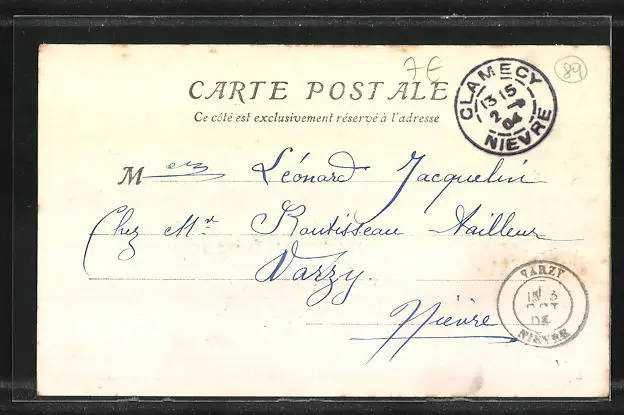 7€
89
CARTE POSTALE
Ce côté est exclusivement réservé à l'adresse
CLAMECY
13 15
2
04
NIEVRE
Léonard Jacquelin
Chez Mr Routisseau tailleur
Varzy.
Nièvre
VARZY
3
OCT
04
NIEVRE